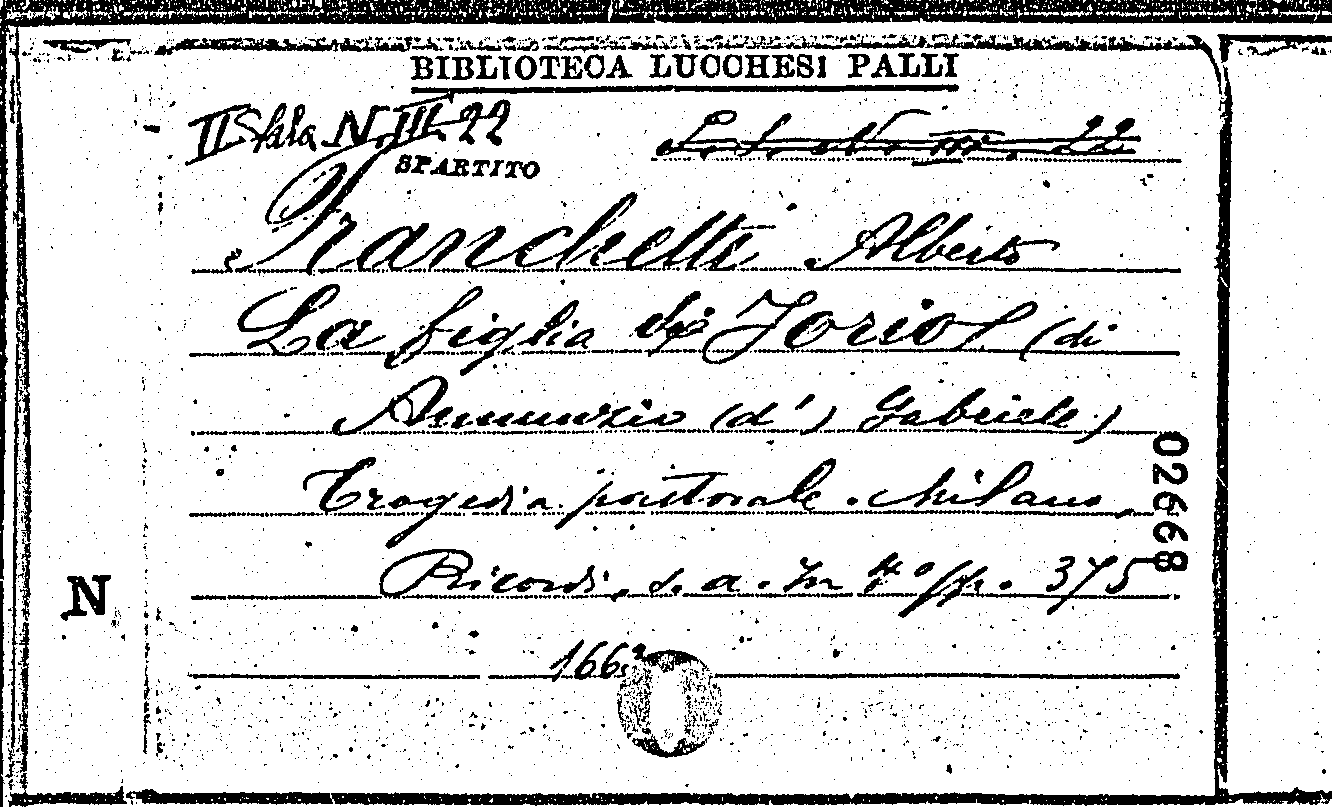 BIBLIOTECA LUCCHESI PALLI
II Sala N. III 22
SPARTITO
Franchetti Alberto
La figlia di Jorio (di
Annunzio (d') Gabriele)
Tragedia pastorale. Milano,
Ricordi, s. a. In 4° pp. 375
02668
N